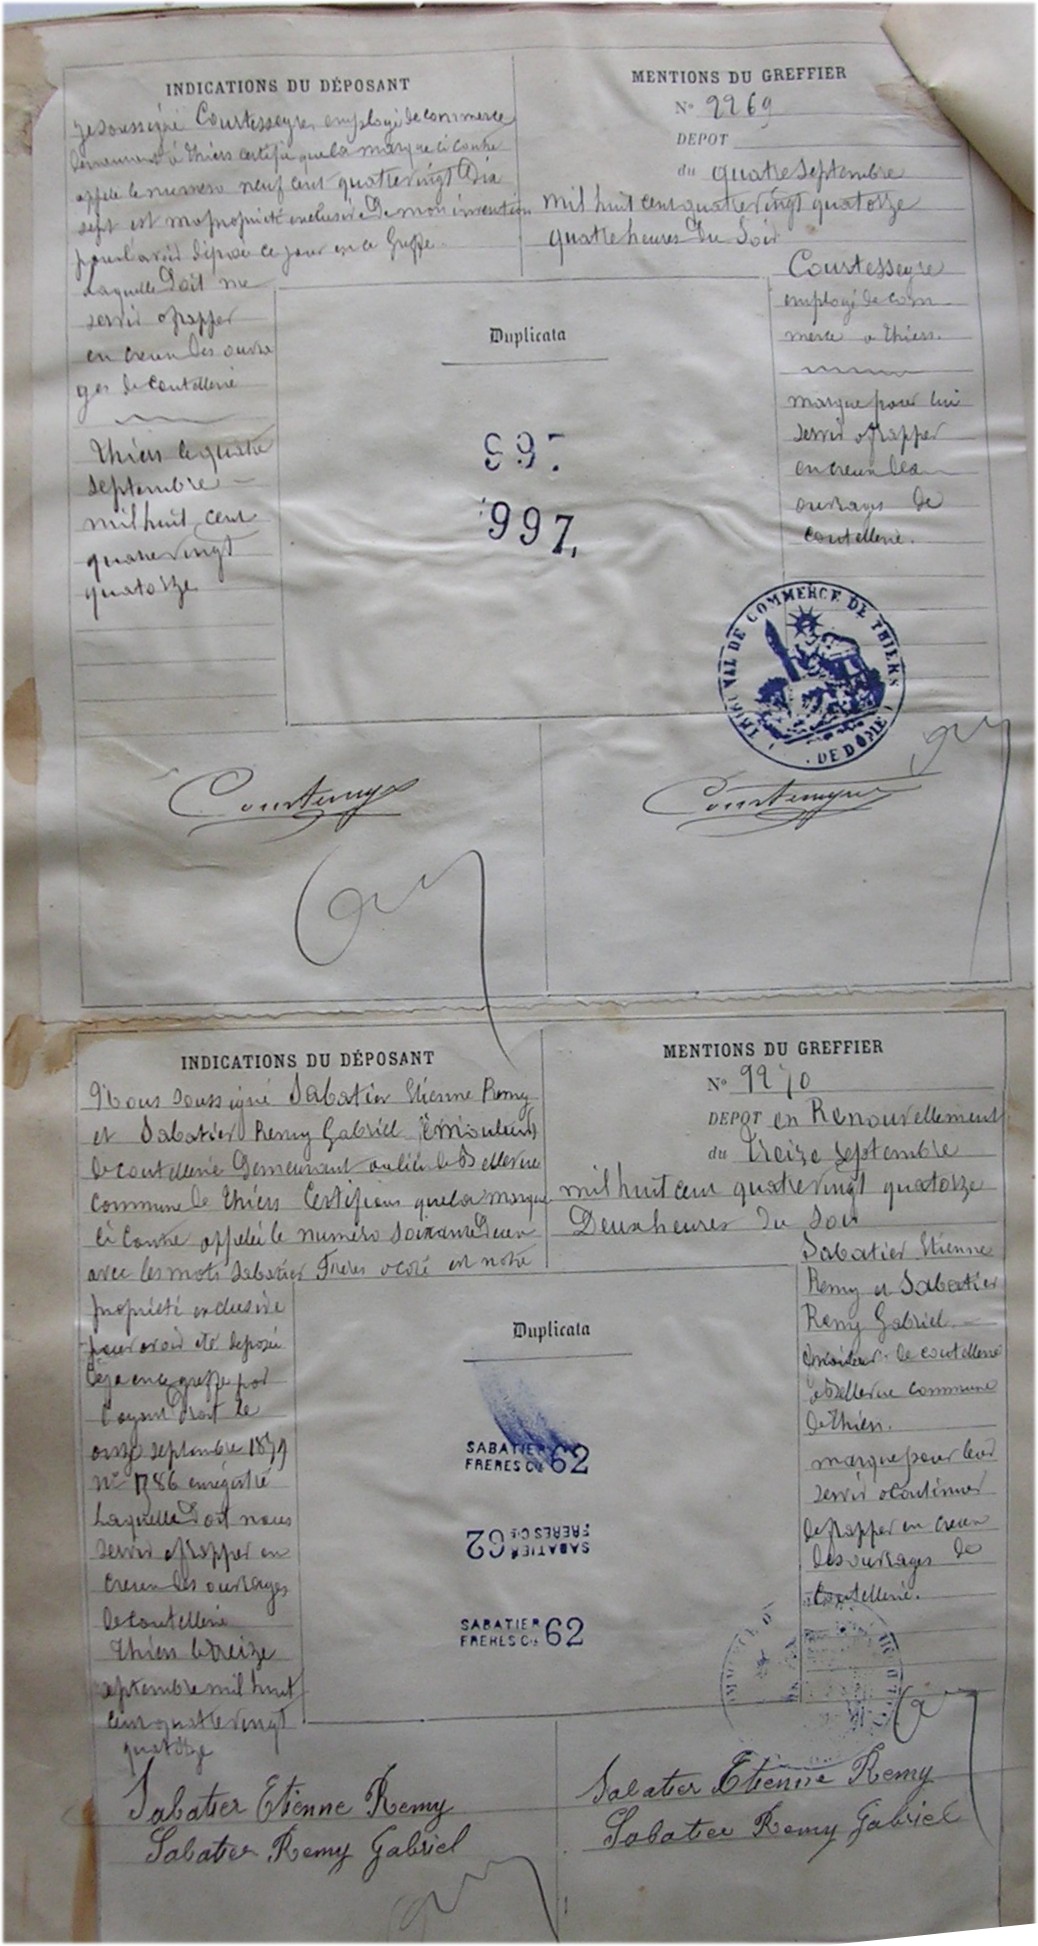 INDICATIONS DU DÉPOSANT
Je soussigné Courtesseyre, employé de commerce
demeurant à Thiers certifie que la marque ci contre
appelé le numero neuf cent quatre vingt dix
sept est ma propriété exclusive de mon invention
pour l'avoir déposé ce jour en ce Greffe.
Laquelle doit me
servir a frapper
en creux des ouvra
ges de coutellerie
Thiers le quatre
septembre
mil huit cent
quatre vingt
quatorze
MENTIONS DU GREFFIER
N° 2269
DEPOT
du quatre septembre
mil huit cent quatre vingt quatorze
quatre heures du soir
Courtesseyre
employé de com
merce a Thiers.
marque pour lui
servir a frapper
en creux des
ouvrages de
coutellerie.
Duplicata
997
997
TRIBUNAL DE COMMERCE DE THIERS
DE DÔME
Courtesseyre
Courtesseyre
INDICATIONS DU DÉPOSANT
Nous soussigné Sabatier Etienne Remy
et Sabatier Remy Gabriel émouleurs
de coutellerie demeurant au lieu de Bellevue
commune de Thiers Certifions que la marque
ci contre appelée le numéro soixante deux
avec les mots Sabatier Frères a coté est notre
propriété exclusive
pour avoir été déposée
déjà en ce greffe par
l'ayant droit le
onze septembre 1879
n° 1786 enregistré
Laquelle doit nous
servir a frapper en
creux des ouvrages
de coutellerie
Thiers le treize
septembre mil huit
cent quatre vingt
quatorze
MENTIONS DU GREFFIER
N° 2270
DEPOT en Renouvellement
du treize septembre
mil huit cent quatre vingt quatorze
Deux heures du soir
Sabatier Etienne
Remy et Sabatier
Remy Gabriel
émouleurs de coutellerie
a Bellevue commune
de Thiers.
marque pour leur
servir a continuer
de frapper en creux
des ouvrages de
coutellerie.
Duplicata
SABATIER
FRERES Ce 62
SABATIER
FRERES Ce 62
SABATIER
FRERES Ce 62
Sabatier Etienne Remy
Sabatier Remy Gabriel
Sabatier Etienne Remy
Sabatier Remy Gabriel